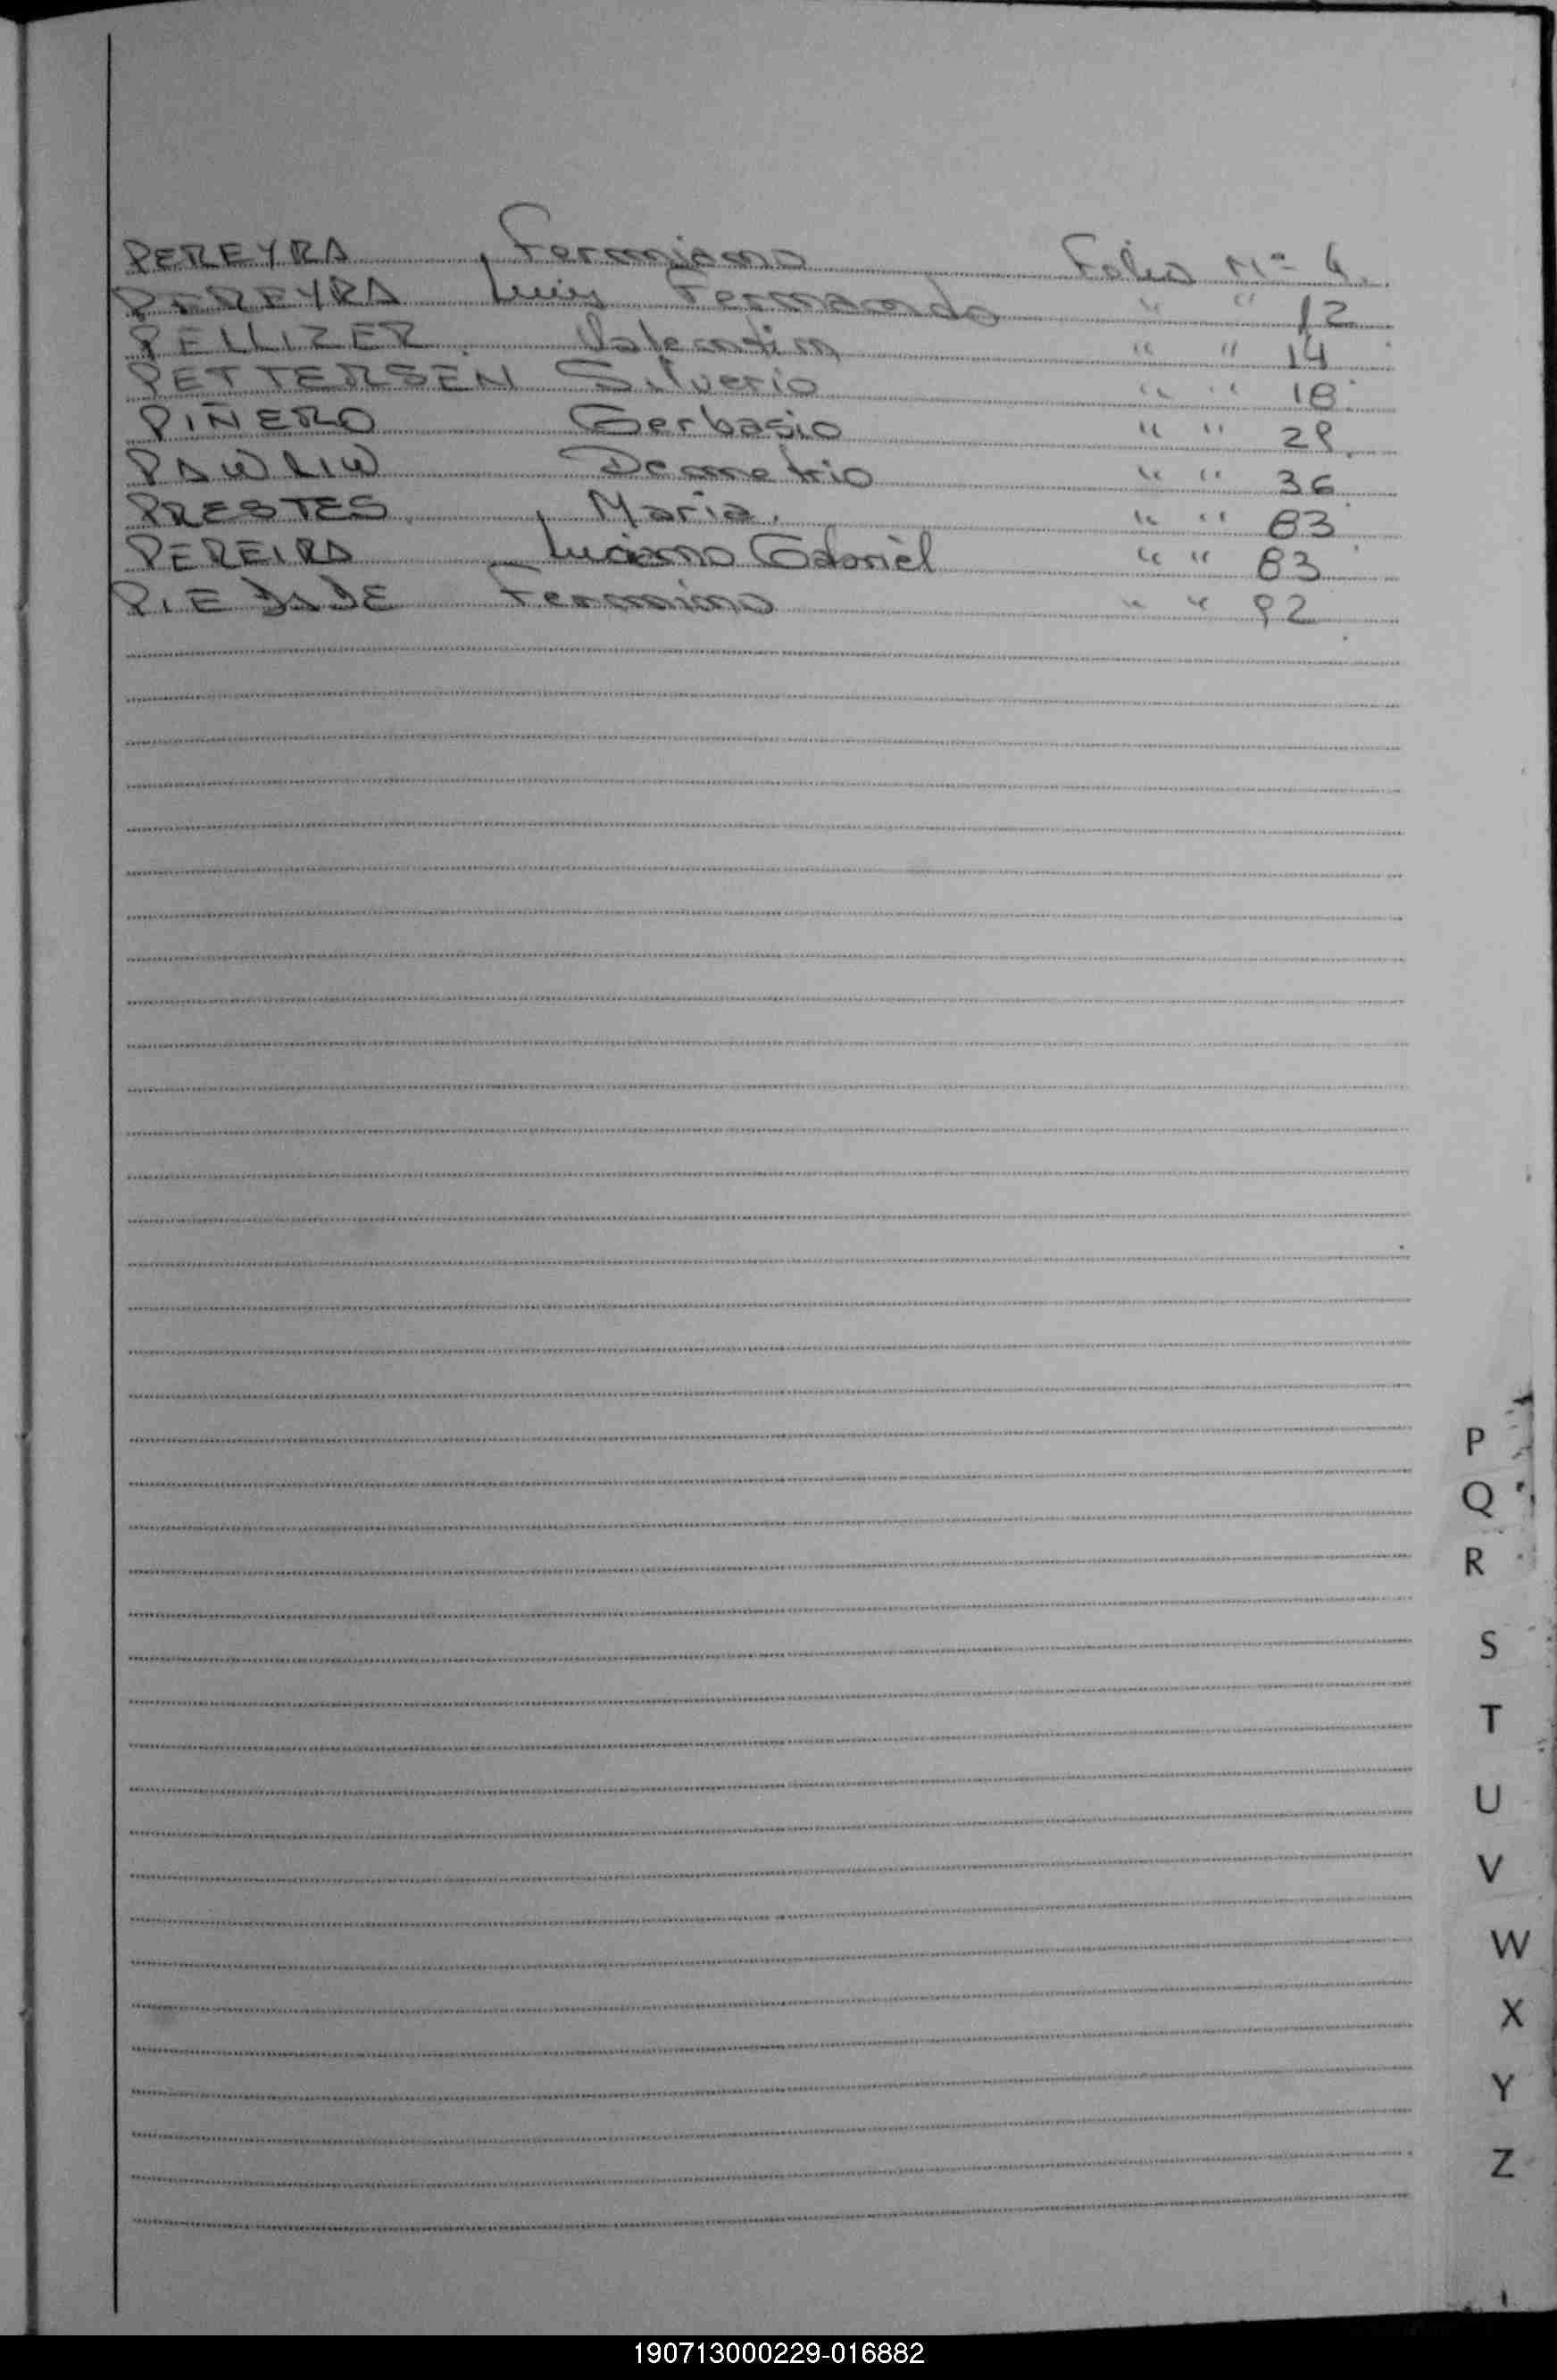 PEREYRA Fermiano Folio Nº 4.
PEREYRA Luis Fernando " " 12
PELLIZER Valentin " " 14
PETTERSEN Silverio " " 18
PIÑERO Gerbasio " " 29
PAWLIW Demetrio " " 36
PRESTES Maria. " " 83
PEREIRA Luciano Gabriel " " 83
PIEDADE Fermino " " 92
P
Q
R
S
T
U
V
W
X
Y
Z
190713000229-016882